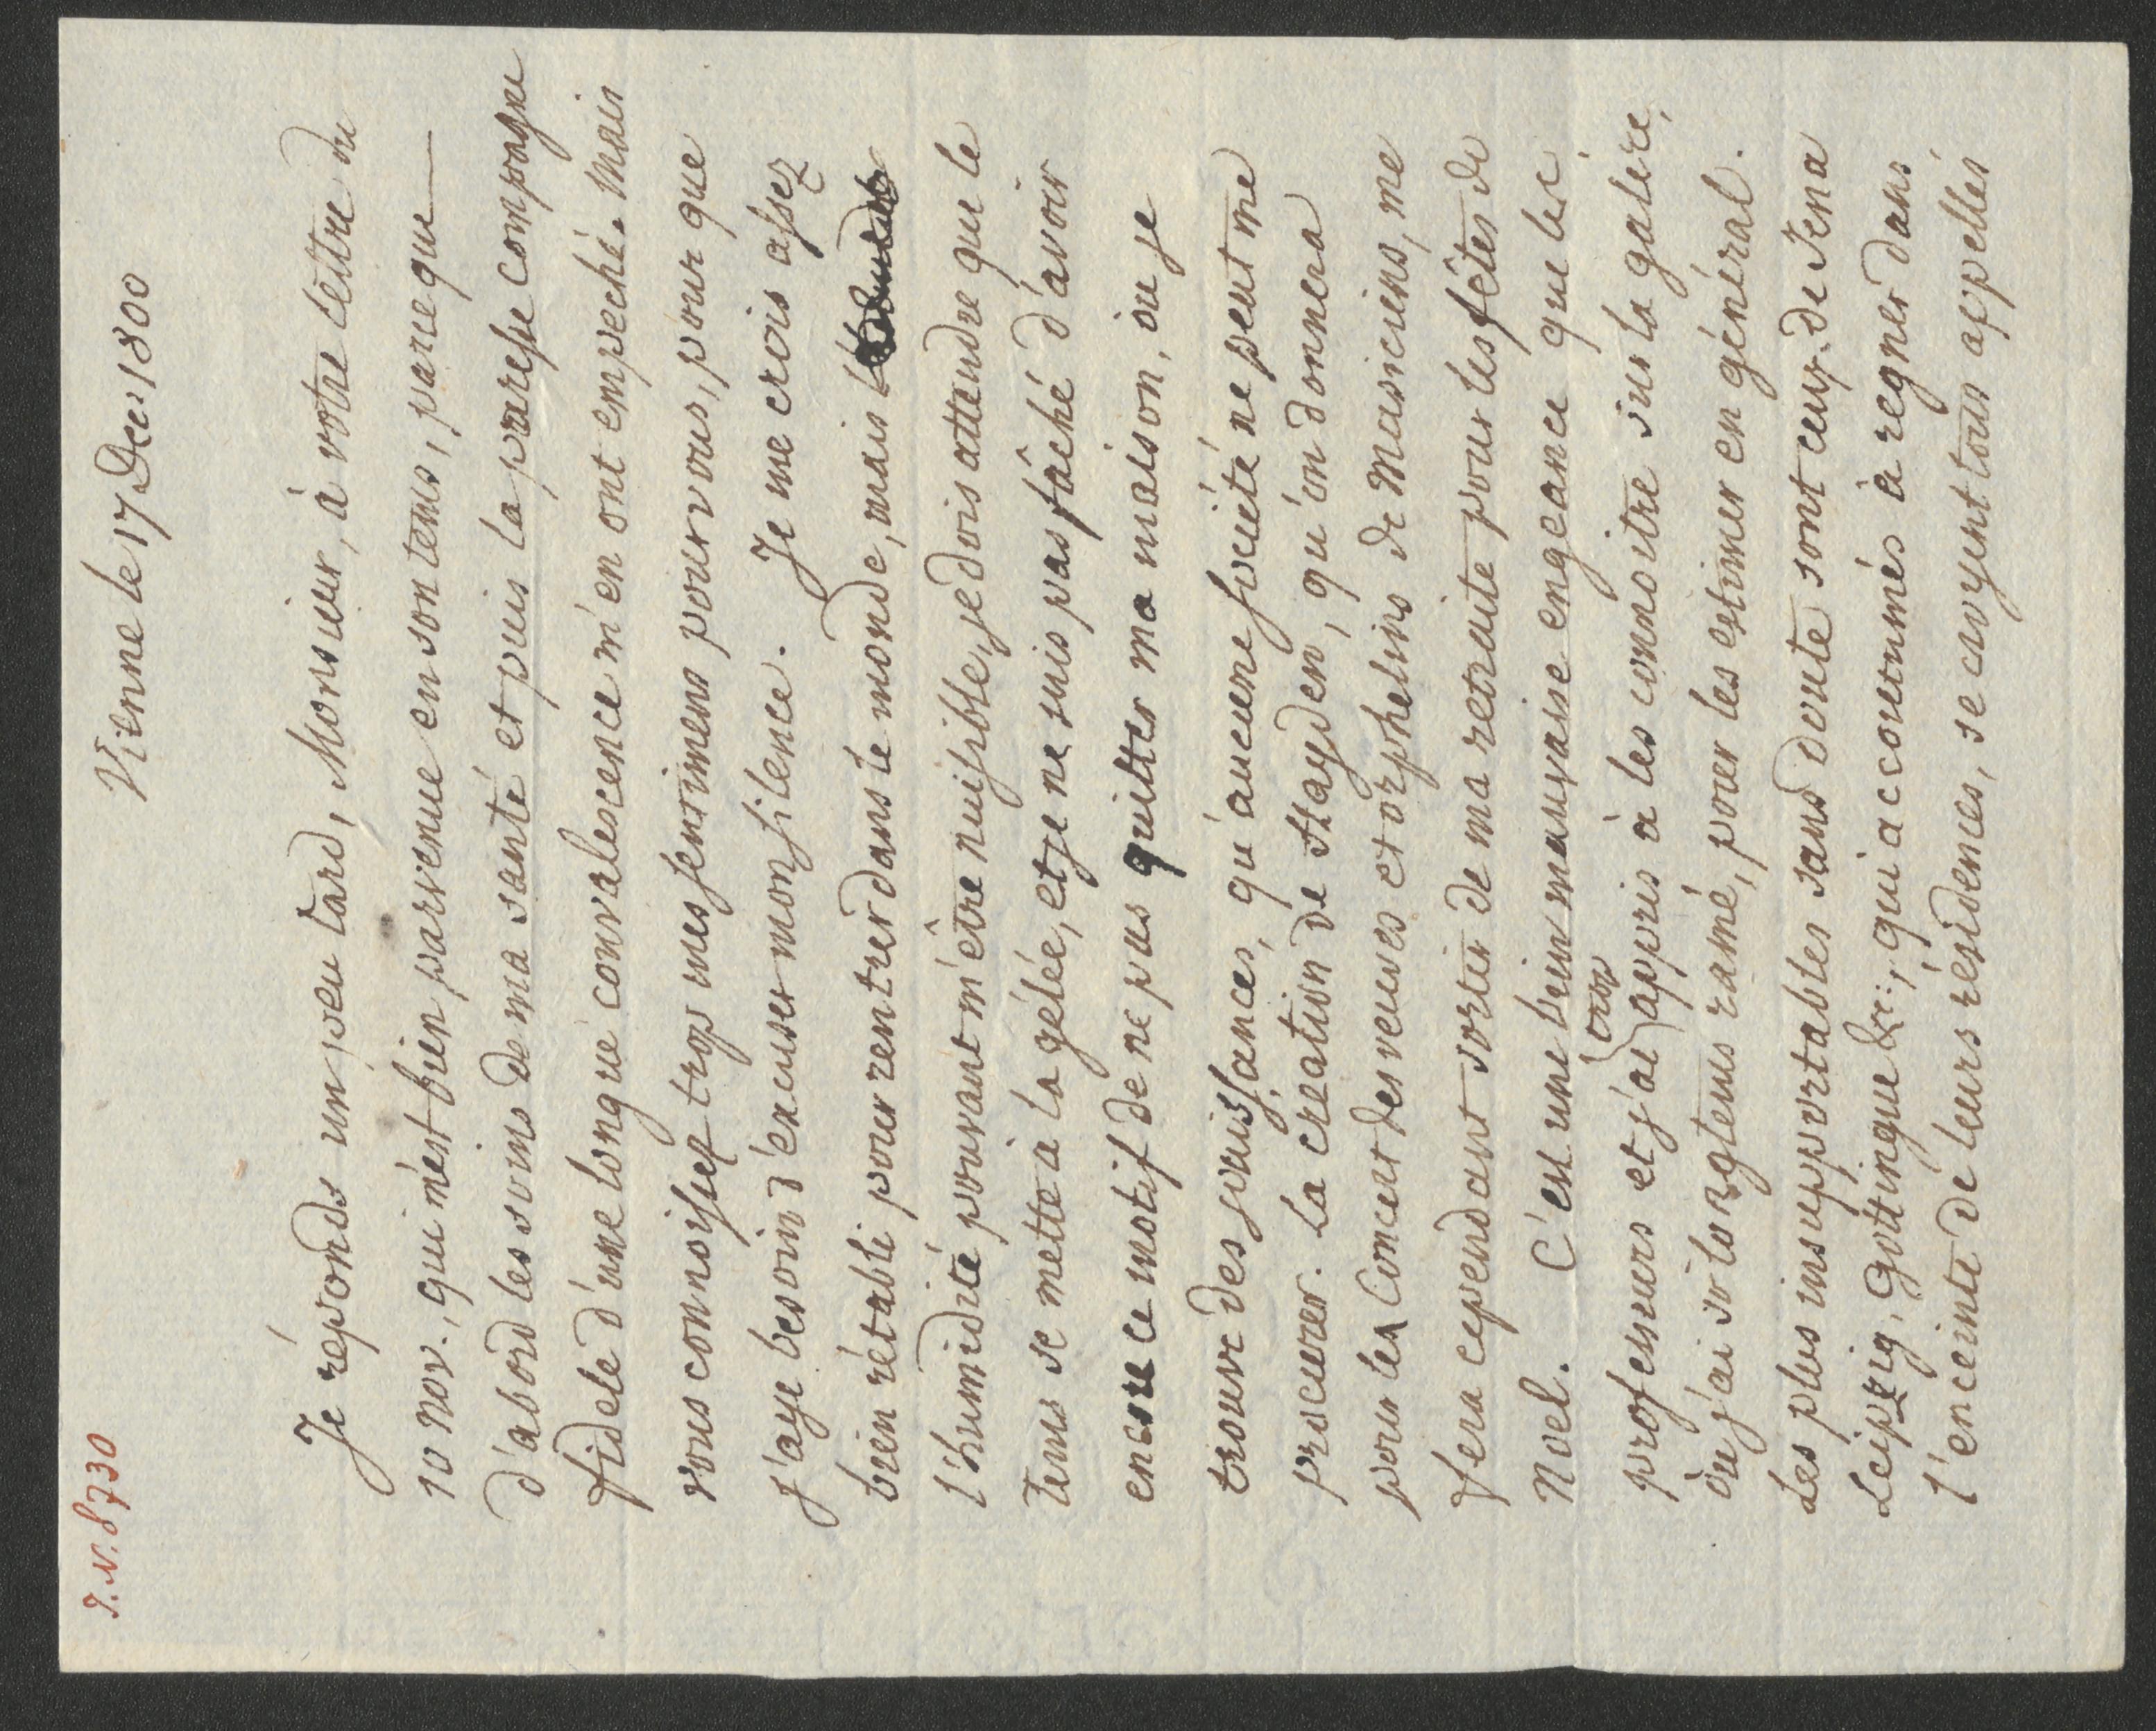 I.N. 8730
Vienne le 17 Decr 1800
Je réponds un peu tard, Monsieur, à votre lettre du
10 Nov., qui m'est bien parvenue en son tems, parceque
d'abord les soins de ma santé et puis la paresse compagne
fidele d'une longue convalescence m'en ont empeché. Mais
vous connoissez trop mes sentimens pour vous, pour que
j'aye besoin d'excuser mon silence. Je me crois assez
bien rétabli pour rentrer dans le monde, mais
l'humidité pouvant m'être nuisible, je dois attendre que le
tems se mette à la gélée, et je ne suis pas fâché d'avoir
encore ce motif de ne pas quitter ma maison, ou je
trouve des jouissances, qu'aucune société ne peut me
procurer. La création de Hayden, qu'on donnera
pour les Concert des veuves et orphelins de Musiciens, me
fera cependant sortir de ma retraite pour les fêtes de
Noel. C'est une bien mauvaise engeance que les
professeurs et j'ai trop appris à les connoitre sur la galère,
ou j'ai si longtems ramé, pour les estimer en général.
Les plus insupportables sans doute sont ceux de Jena
Leipzig, Gottingue &c:, qui accoutumés à regner dans
l'enceinte de leurs résidences, se croyent tous appellés